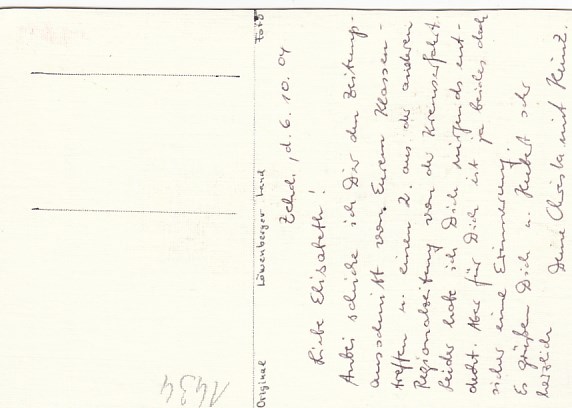 Zehd., d. 6. 10. 04
Liebe Elisabeth!
Anbei schicke ich Dir den Zeitungs-
ausschnitt von Eurem Klassen-
treffen u. einen 2. aus der anderen
Regionalzeitung von der Kremserfahrt.
Leider habe ich Dich nirgends ent-
deckt. Aber für Dich ist ja beides doch
sicher eine Erinnerung.
Es grüßen Dich u. Hubert sehr
herzlich Deine Christa mit Heinz.
Original Löwenberger Land
1434